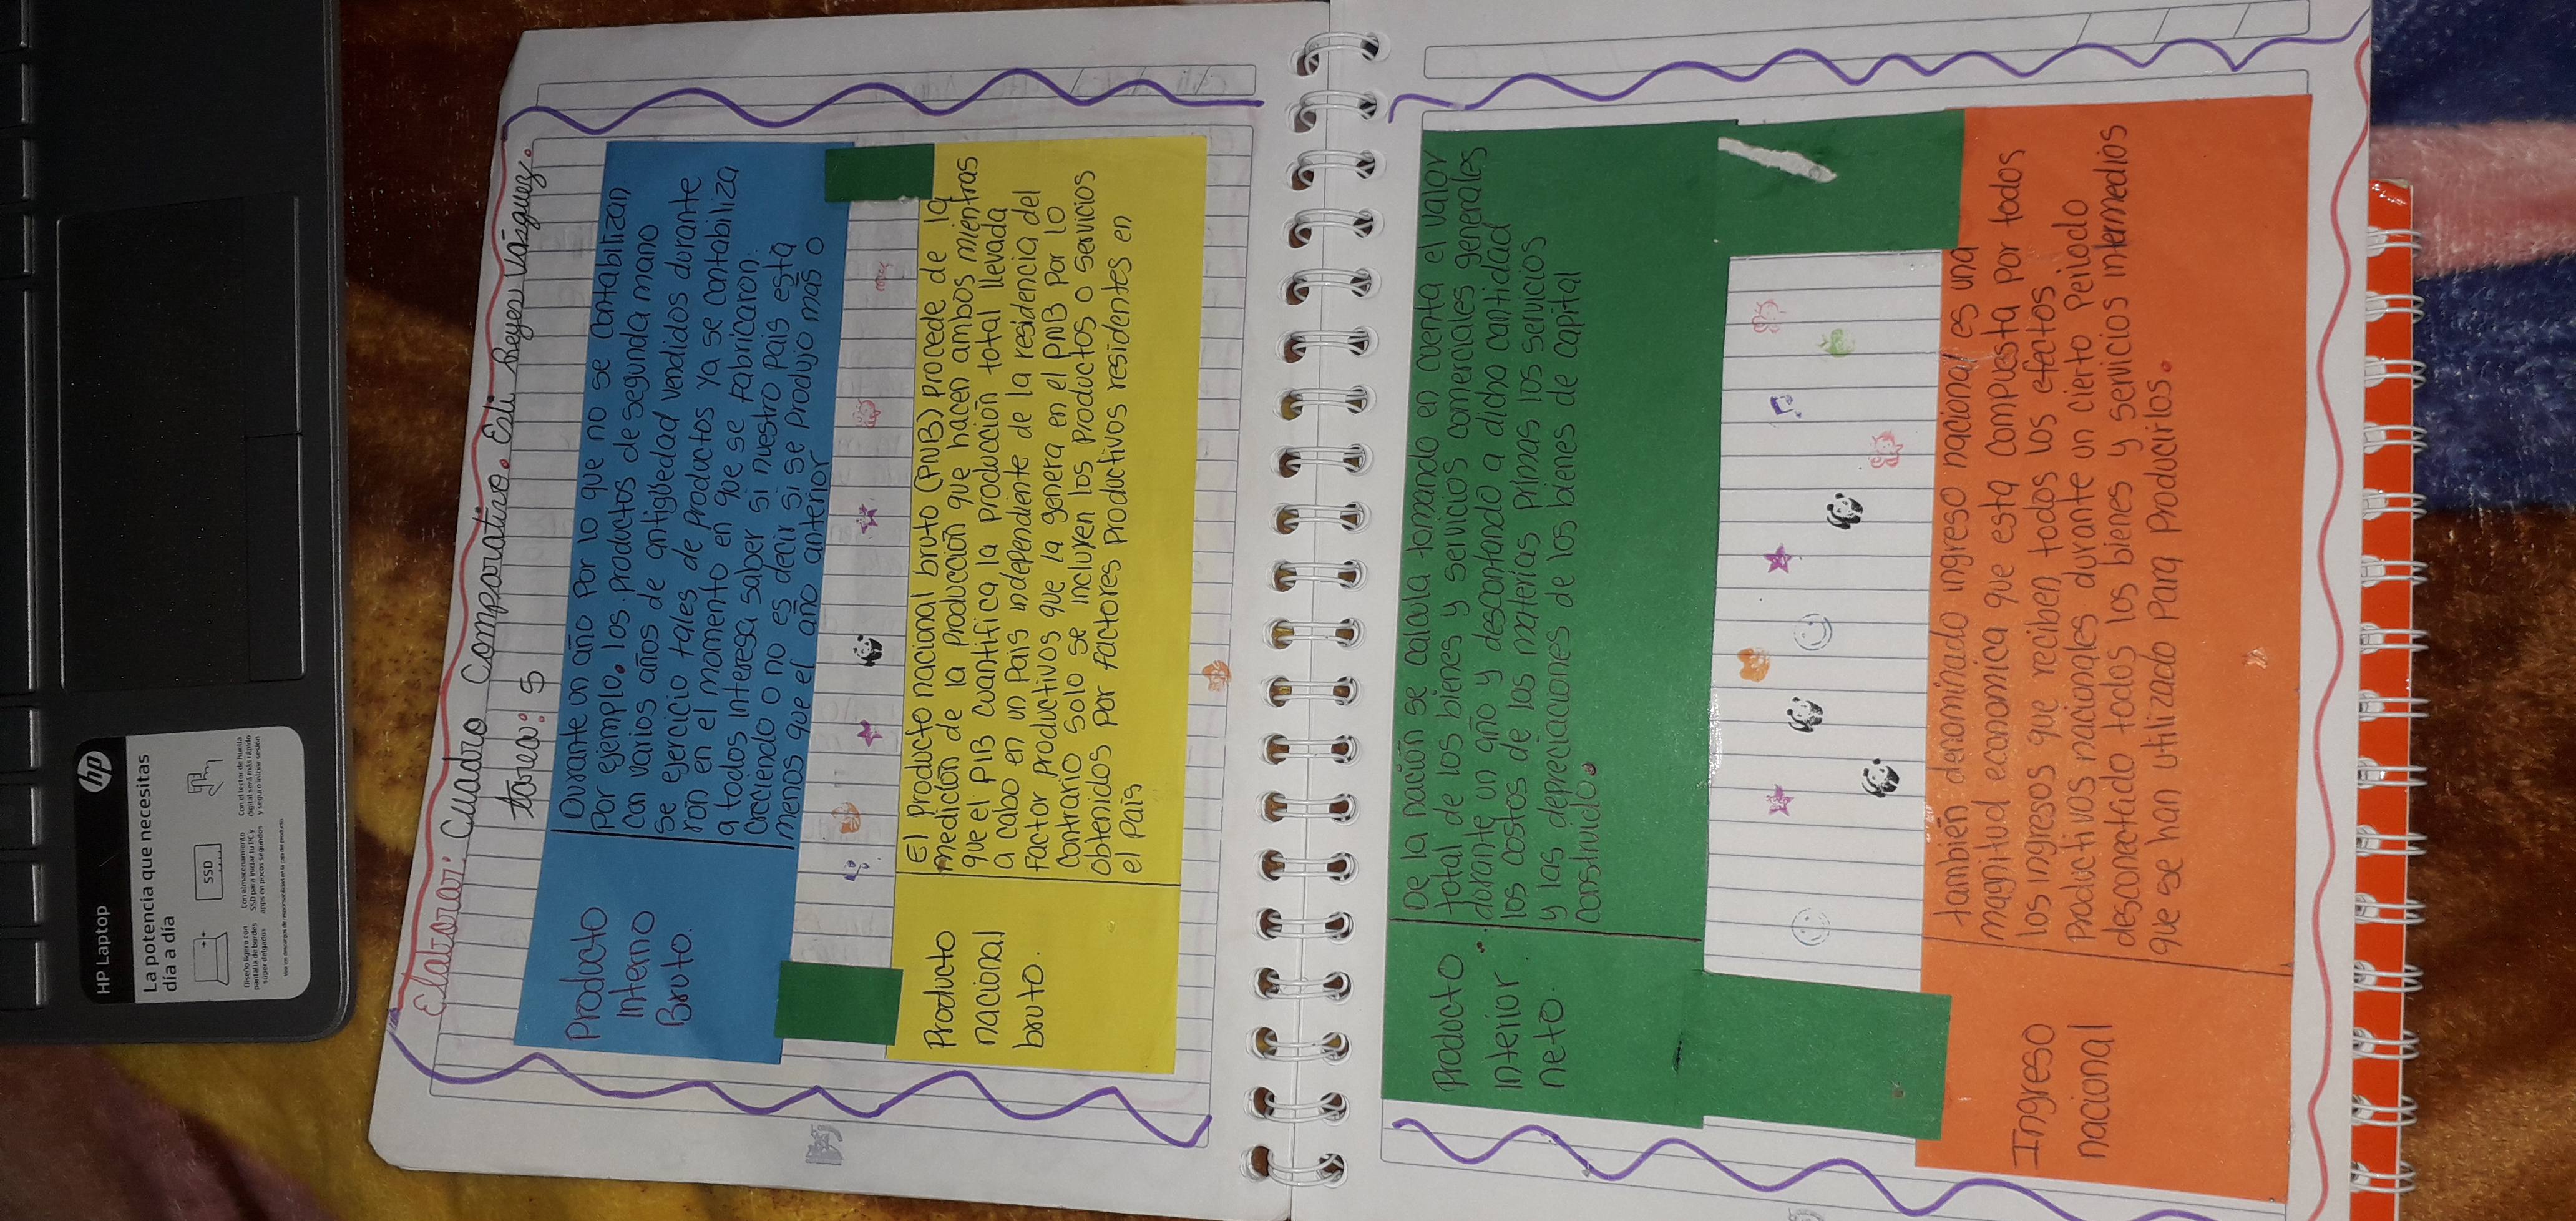 HP Laptop
hp
La potencia que necesitas
día a día
SSD
Elaborar: Cuadro Comparativo. Esli Reyes Vásquez.
tarea: 5
Producto
Interno
Bruto.
Durante un año Por lo que no se contabilizan
Por ejemplo. los productos de segunda mano
con varios años de antigüedad vendidos durante
se ejercicio tales de productos ya se contabiliza
ron en el momento en que se fabricaron.
a todos interesa saber si nuestro país está
creciendo o no es decir si se produjo más o
menos que el año anterior
Producto
nacional
bruto.
El producto nacional bruto (PNB) procede de la
medición de la producción que hacen ambos mientras
que el PIB cuantifica la producción total llevada
a cabo en un País independiente de la residencia del
factor productivos que la genera en el PNB Por lo
contrario solo se incluyen los Productos o servicios
obtenidos por factores productivos residentes en
el País
Producto
interior
neto.
De la nación se calcula tomando en cuenta el valor
total de los bienes y servicios comerciales generales
durante un año y descontando a dicha cantidad
los costos de las materias primas los servicios
y las depreciaciones de los bienes de capital
construido.
Ingreso
nacional
también denominado ingreso nacional es una
magnitud economica que esta compuesta por todos
los ingresos que reciben todos los efectos
Productivos nacionales durante un cierto Peilodo
desconectado todos los bienes y servicios intermedios
que se han utilizado Para Producirlos.